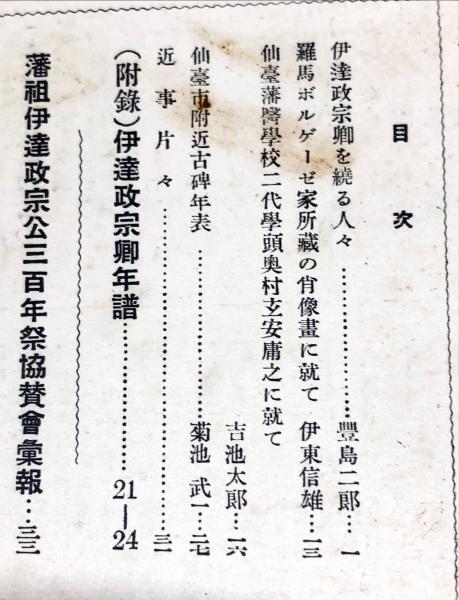 目次
伊達政宗卿を繞る人々…………………豐島二郎…一
羅馬ボルゲーゼ家所藏の肖像畫に就て 伊東信雄…一三
仙臺藩醫學校二代學頭奥村玄安庸之に就て
吉池太郎…一六
仙臺市附近古碑年表…………………菊池武一…二七
近事片々…………………三一
(附錄)伊達政宗卿年譜…………………21—24
藩祖伊達政宗公三百年祭協賛會彙報…三三